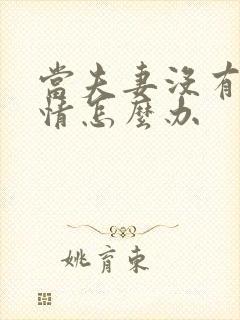 當夫妻沒有
情怎麼办
姚育東